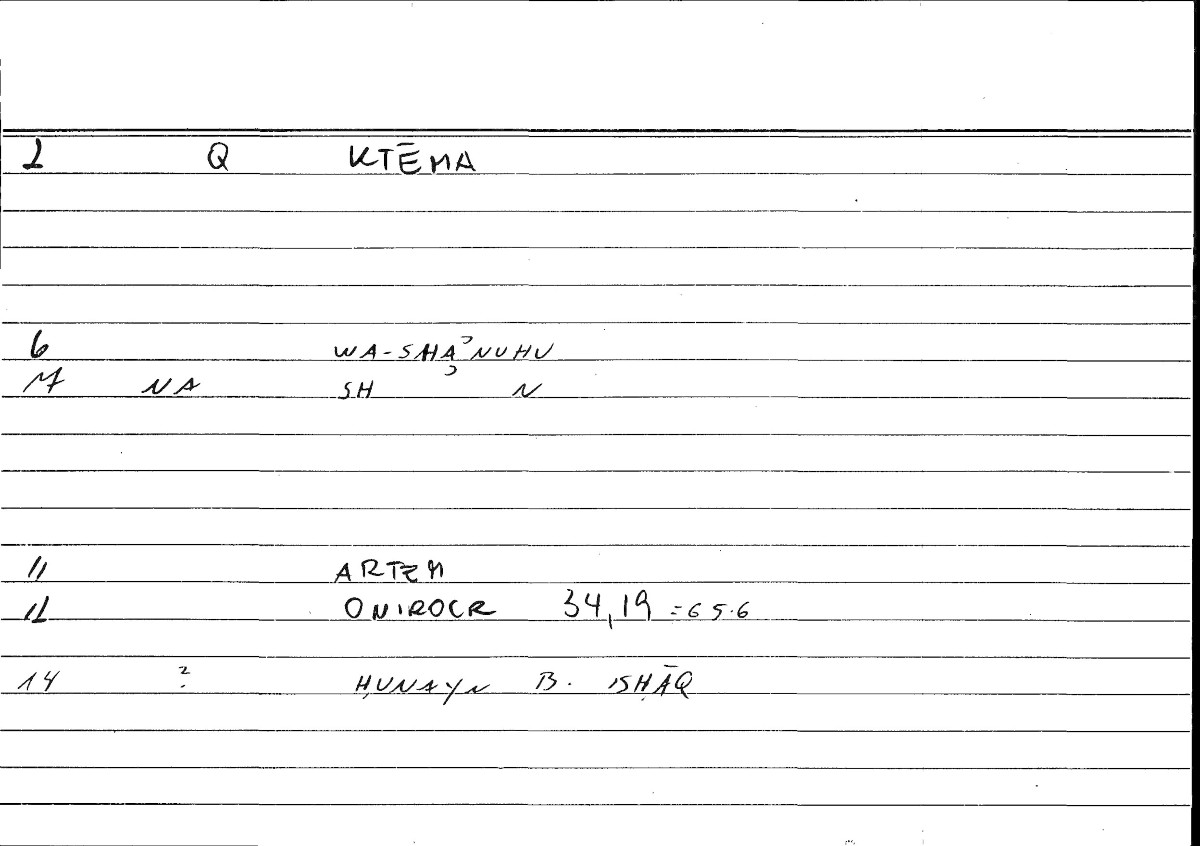 1 Q KTĒMA
6 WA-SHAʾNUHU
M NA SH ʾ N
11 ARTEM
12 ONIROCR 34,19 =65.6
14 ? ḤUNAYN B. ISḤĀQ